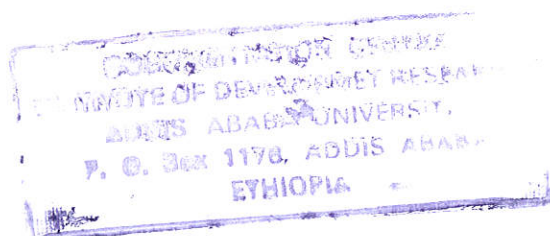 CENTRE
OF DEVELOPMET RESEAR
ADDIS ABABA UNIVERSITY,
P. O. Box 1176, ADDIS ABAB
ETHIOPIA